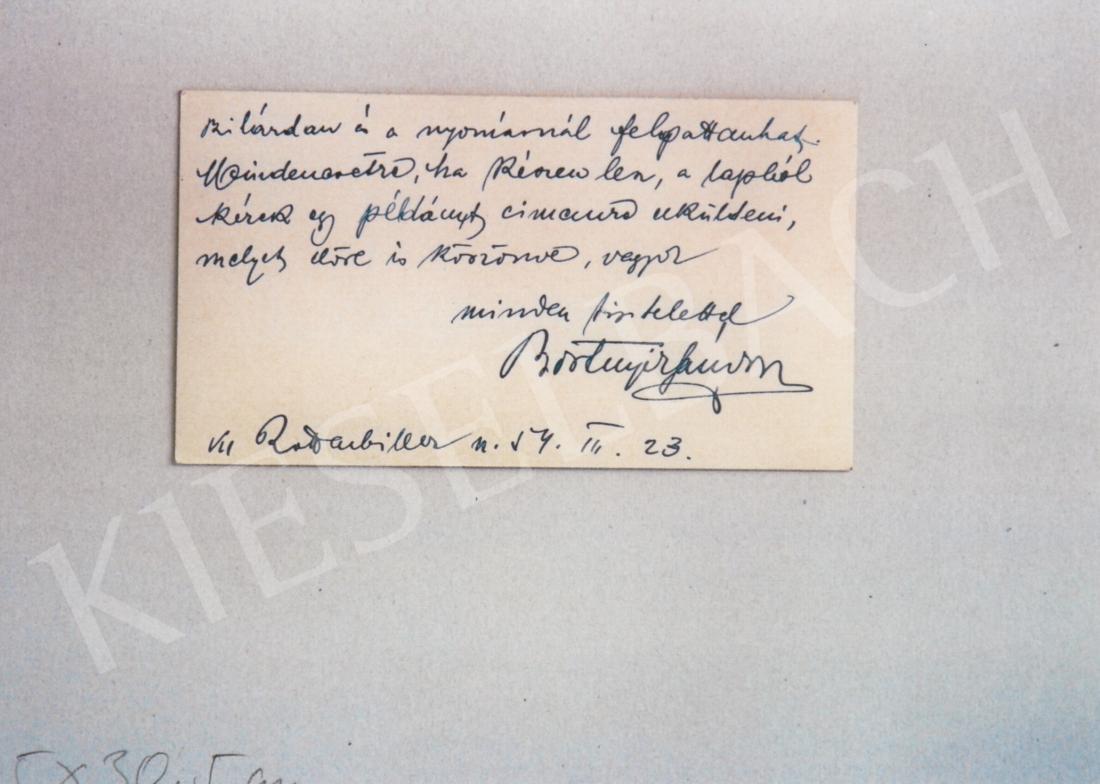 szilárdan és a nyomásnál felpattanhat.
Mindenesetre, ha készen lesz, a lapból
kérek egy példányt címemre elküldeni,
melyet előre is köszönve, vagyok
minden tisztelettel
Bortnyik Sándor
VII Rottenbiller u. 54. III. 23.
KIESELBACH